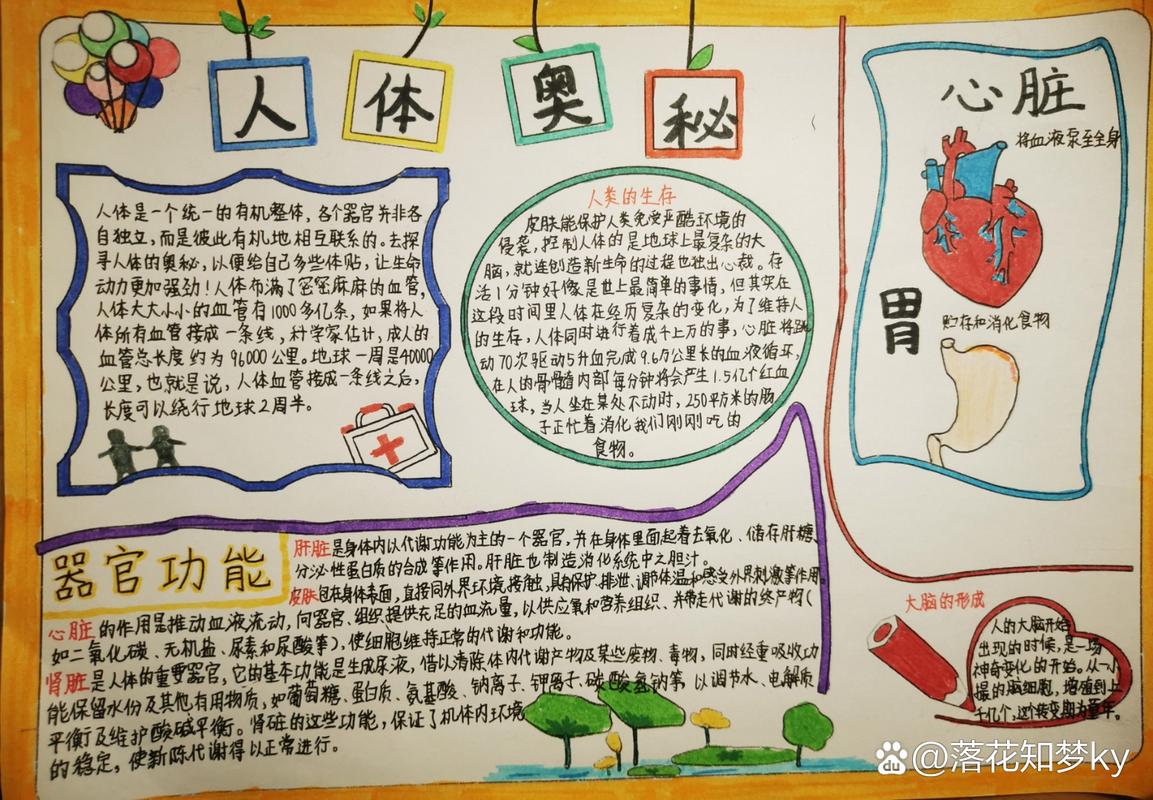 人体奥秘
人体是一个统一的有机整体，各个器官并非各
自独立，而是彼此有机地相互联系的。去探
寻人体的奥秘，以便给自己多些体贴，让生命
动力更加强劲！人体布满了密密麻麻的血管，
人体大大小小的血管有1000多亿条，如果将人
体所有血管接成一条线，科学家估计，成人的
血管总长度约为96000公里。地球一周是40000
公里，也就是说，人体血管接成一条线之后，
长度可以绕行地球2周半。
人类的生存
皮肤能保护人类免受严酷环境的
侵袭，控制人体的是地球上最复杂的大
脑，就连创造新生命的过程也独出心裁。存
活1分钟好像是世上最简单的事情，但其实在
这段时间里人体在经历复杂的变化，为了维持人
的生存，人体同时进行着成千上万的事，心脏将跳
动70次驱动5升血完成9.6万公里长的血液循环，
在人的骨骼髓内部每分钟将会产生1.5亿个红血
球，当人坐在某处不动时，250平方米的肠
子正忙着消化我们刚刚吃的
食物。
心脏
将血液泵至全身
胃
贮存和消化食物
器官功能
肝脏是身体内以代谢功能为主的一个器官，并在身体里面起着去氧化、储存肝糖、
分泌性蛋白质的合成等作用。肝脏也制造消化系统中之胆汁。
皮肤包在身体表面，直接同外界环境接触，具有保护、排泄、调节体温和感受外界刺激等作用。
心脏的作用是推动血液流动，向器官、组织提供充足的血流量，以供应氧和营养组织、并带走代谢的终产物（
如二氧化碳、无机盐、尿素和尿酸等），使细胞维持正常的代谢和功能。
肾脏是人体的重要器官，它的基本功能是生成尿液，借以清除体内代谢产物及某些废物、毒物，同时经重吸收功
能保留水份及其他有用物质，如葡萄糖、蛋白质、氨基酸、钠离子、钾离子、碳酸氢钠等，以调节水、电解质
平衡及维护酸碱平衡。肾脏的这些功能，保证了机体内环境
的稳定，使新陈代谢得以正常进行。
大脑的形成
人的大脑开始
出现的时候，是一场
神奇变化的开始。从一小
撮的脑细胞，增殖到上
千亿个，这转变期为童年。
du @落花知梦ky